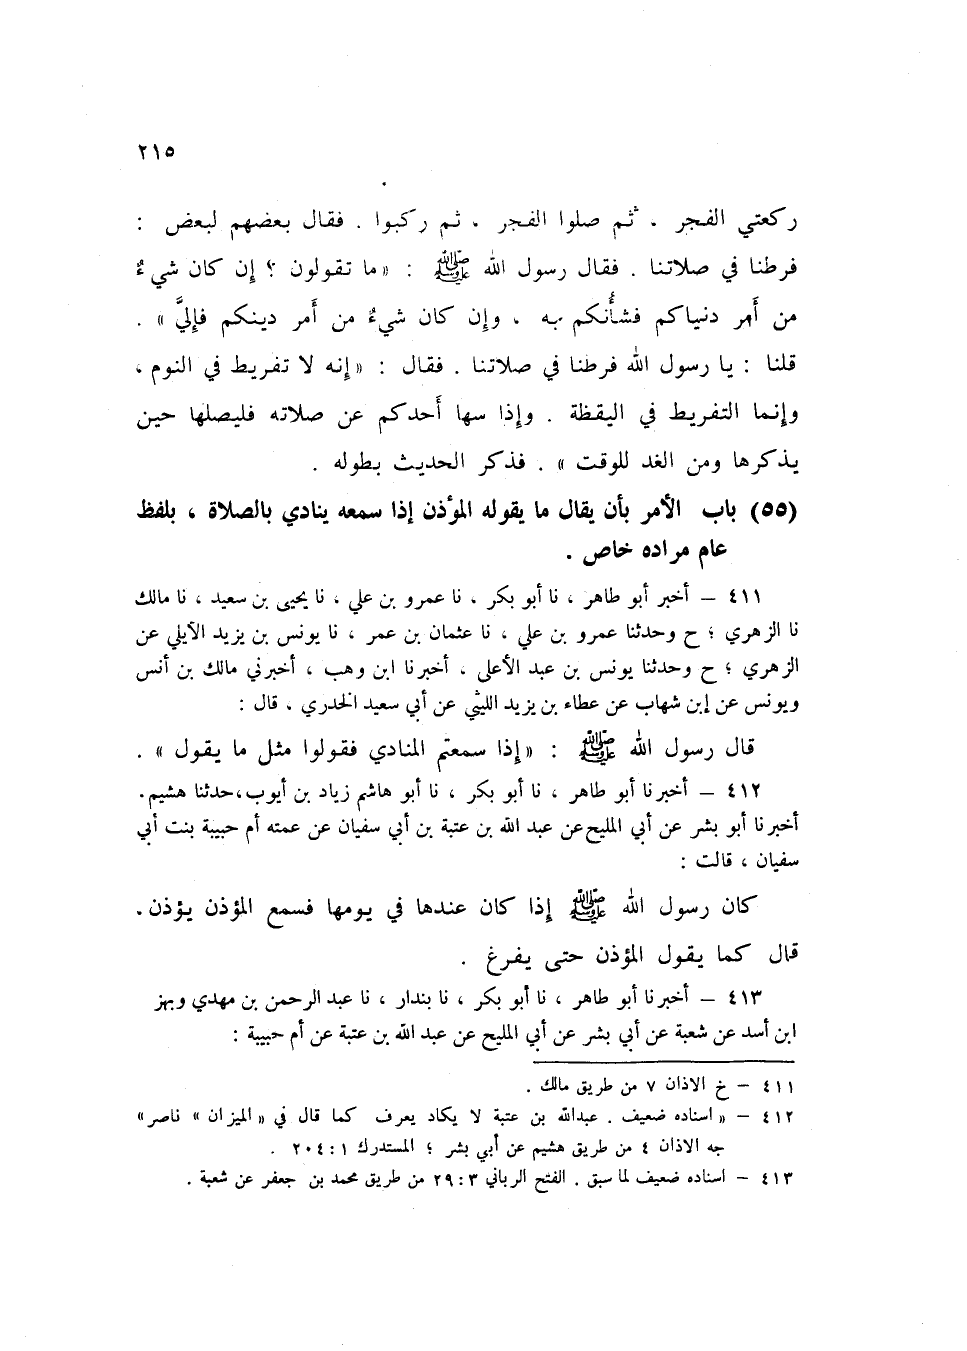 ٢١٥
ركعتي الفجر ، ثم صلوا الفجر ، ثم ركبوا . فقال بعضهم لبعض :
فرطنا في صلاتنا . فقال رسول الله ﷺ : « ما تقولون ؟ إن كان شيءٌ
من أَمر دنياكم فشأْنكم به ، وإن كان شيءٌ من أَمر دينكم فإليَّ » .
قلنا : يا رسول الله فرطنا في صلاتنا . فقال : « إنه لا تفريط في النوم ،
وإنما التفريط في اليقظة . وإذا سها أَحدكم عن صلاته فليصلها حين
يذكرها ومن الغد للوقت » . فذكر الحديث بطوله .
(٥٥) باب الأمر بأن يقال ما يقوله المؤذن إذا سمعه ينادي بالصلاة ، بلفظ
عام مراده خاص .
٤١١ – أخبر أبو طاهر ، نا أبو بكر ، نا عمرو بن علي ، نا يحيى بن سعيد ، نا مالك
نا الزهري ؛ ح وحدثنا عمرو بن علي ، نا عثمان بن عمر ، نا يونس بن يزيد الآيلي عن
الزهري ؛ ح وحدثنا يونس بن عبد الأعلى ، أخبرنا ابن وهب ، أخبرني مالك بن أنس
ويونس عن إبن شهاب عن عطاء بن يزيد الليثي عن أبي سعيد الخدري ، قال :
قال رسول الله ﷺ : « إذا سمعتم المنادي فقولوا مثل ما يقول » .
٤١٢ – أخبرنا أبو طاهر ، نا أبو بكر ، نا أبو هاشم زياد بن أيوب،حدثنا هشيم.
أخبرنا أبو بشر عن أبي المليح عن عبد الله بن عتبة بن أبي سفيان عن عمته أم حبيبة بنت أبي
سفيان ، قالت :
كان رسول الله ﷺ إذا كان عندها في يومها فسمع المؤذن يؤذن.
قال كما يقول المؤذن حتى يفرغ .
٤١٣ – أخبرنا أبو طاهر ، نا أبو بكر ، نا بندار ، نا عبد الرحمن بن مهدي وبهز
ابن أسد عن شعبة عن أبي بشر عن أبي المليح عن عبد الله بن عتبة عن أم حبيبة :
٤١١ – خ الاذان ٧ من طريق مالك .
٤١٢ – « اسناده ضعيف . عبدالله بن عتبة لا يكاد يعرف كما قال في « الميزان » ناصر»
جه الاذان ٤ من طريق هشيم عن أبي بشر ؛ المستدرك ١ : ٢٠٤ .
٤١٣ – اسناده ضعيف لما سبق . الفتح الرباني ٣ : ٢٩ من طريق محمد بن جعفر عن شعبة .